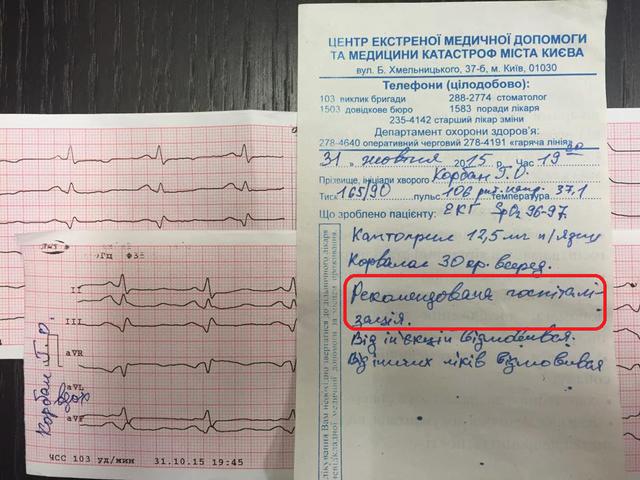 ЦЕНТР ЕКСТРЕНОЇ МЕДИЧНОЇ ДОПОМОГИ
ТА МЕДИЦИНИ КАТАСТРОФ МІСТА КИЄВА
вул. Б. Хмельницького, 37-б, м. Київ, 01030
Телефони (цілодобово):
103 виклик бригади 288-2774 стоматолог
1503 довідкове бюро 1583 поради лікаря
235-4142 старший лікар зміни
Департамент охорони здоров'я:
278-4640 оперативний черговий 278-4191 «гаряча лінія»
31 жовтня 2015 р. Час 19
Прізвище, ініціали хворого Корбан Г.О.
Тиск 165/90 пульс 106 температура 37,1
Що зроблено пацієнту: ЕКГ SpO2 96-97.
Каптоприл 12,5 мг п/язик
Корвалол 30 кр. всеред.
Рекомендована госпіталі-
зація.
Від ін'єкцій відмовився.
Від інших ліків відмовився
II
III
aVR
aVL
aVF
Корбан Г.О.
ЧСС 103 уд/мин 31.10.15 19:45